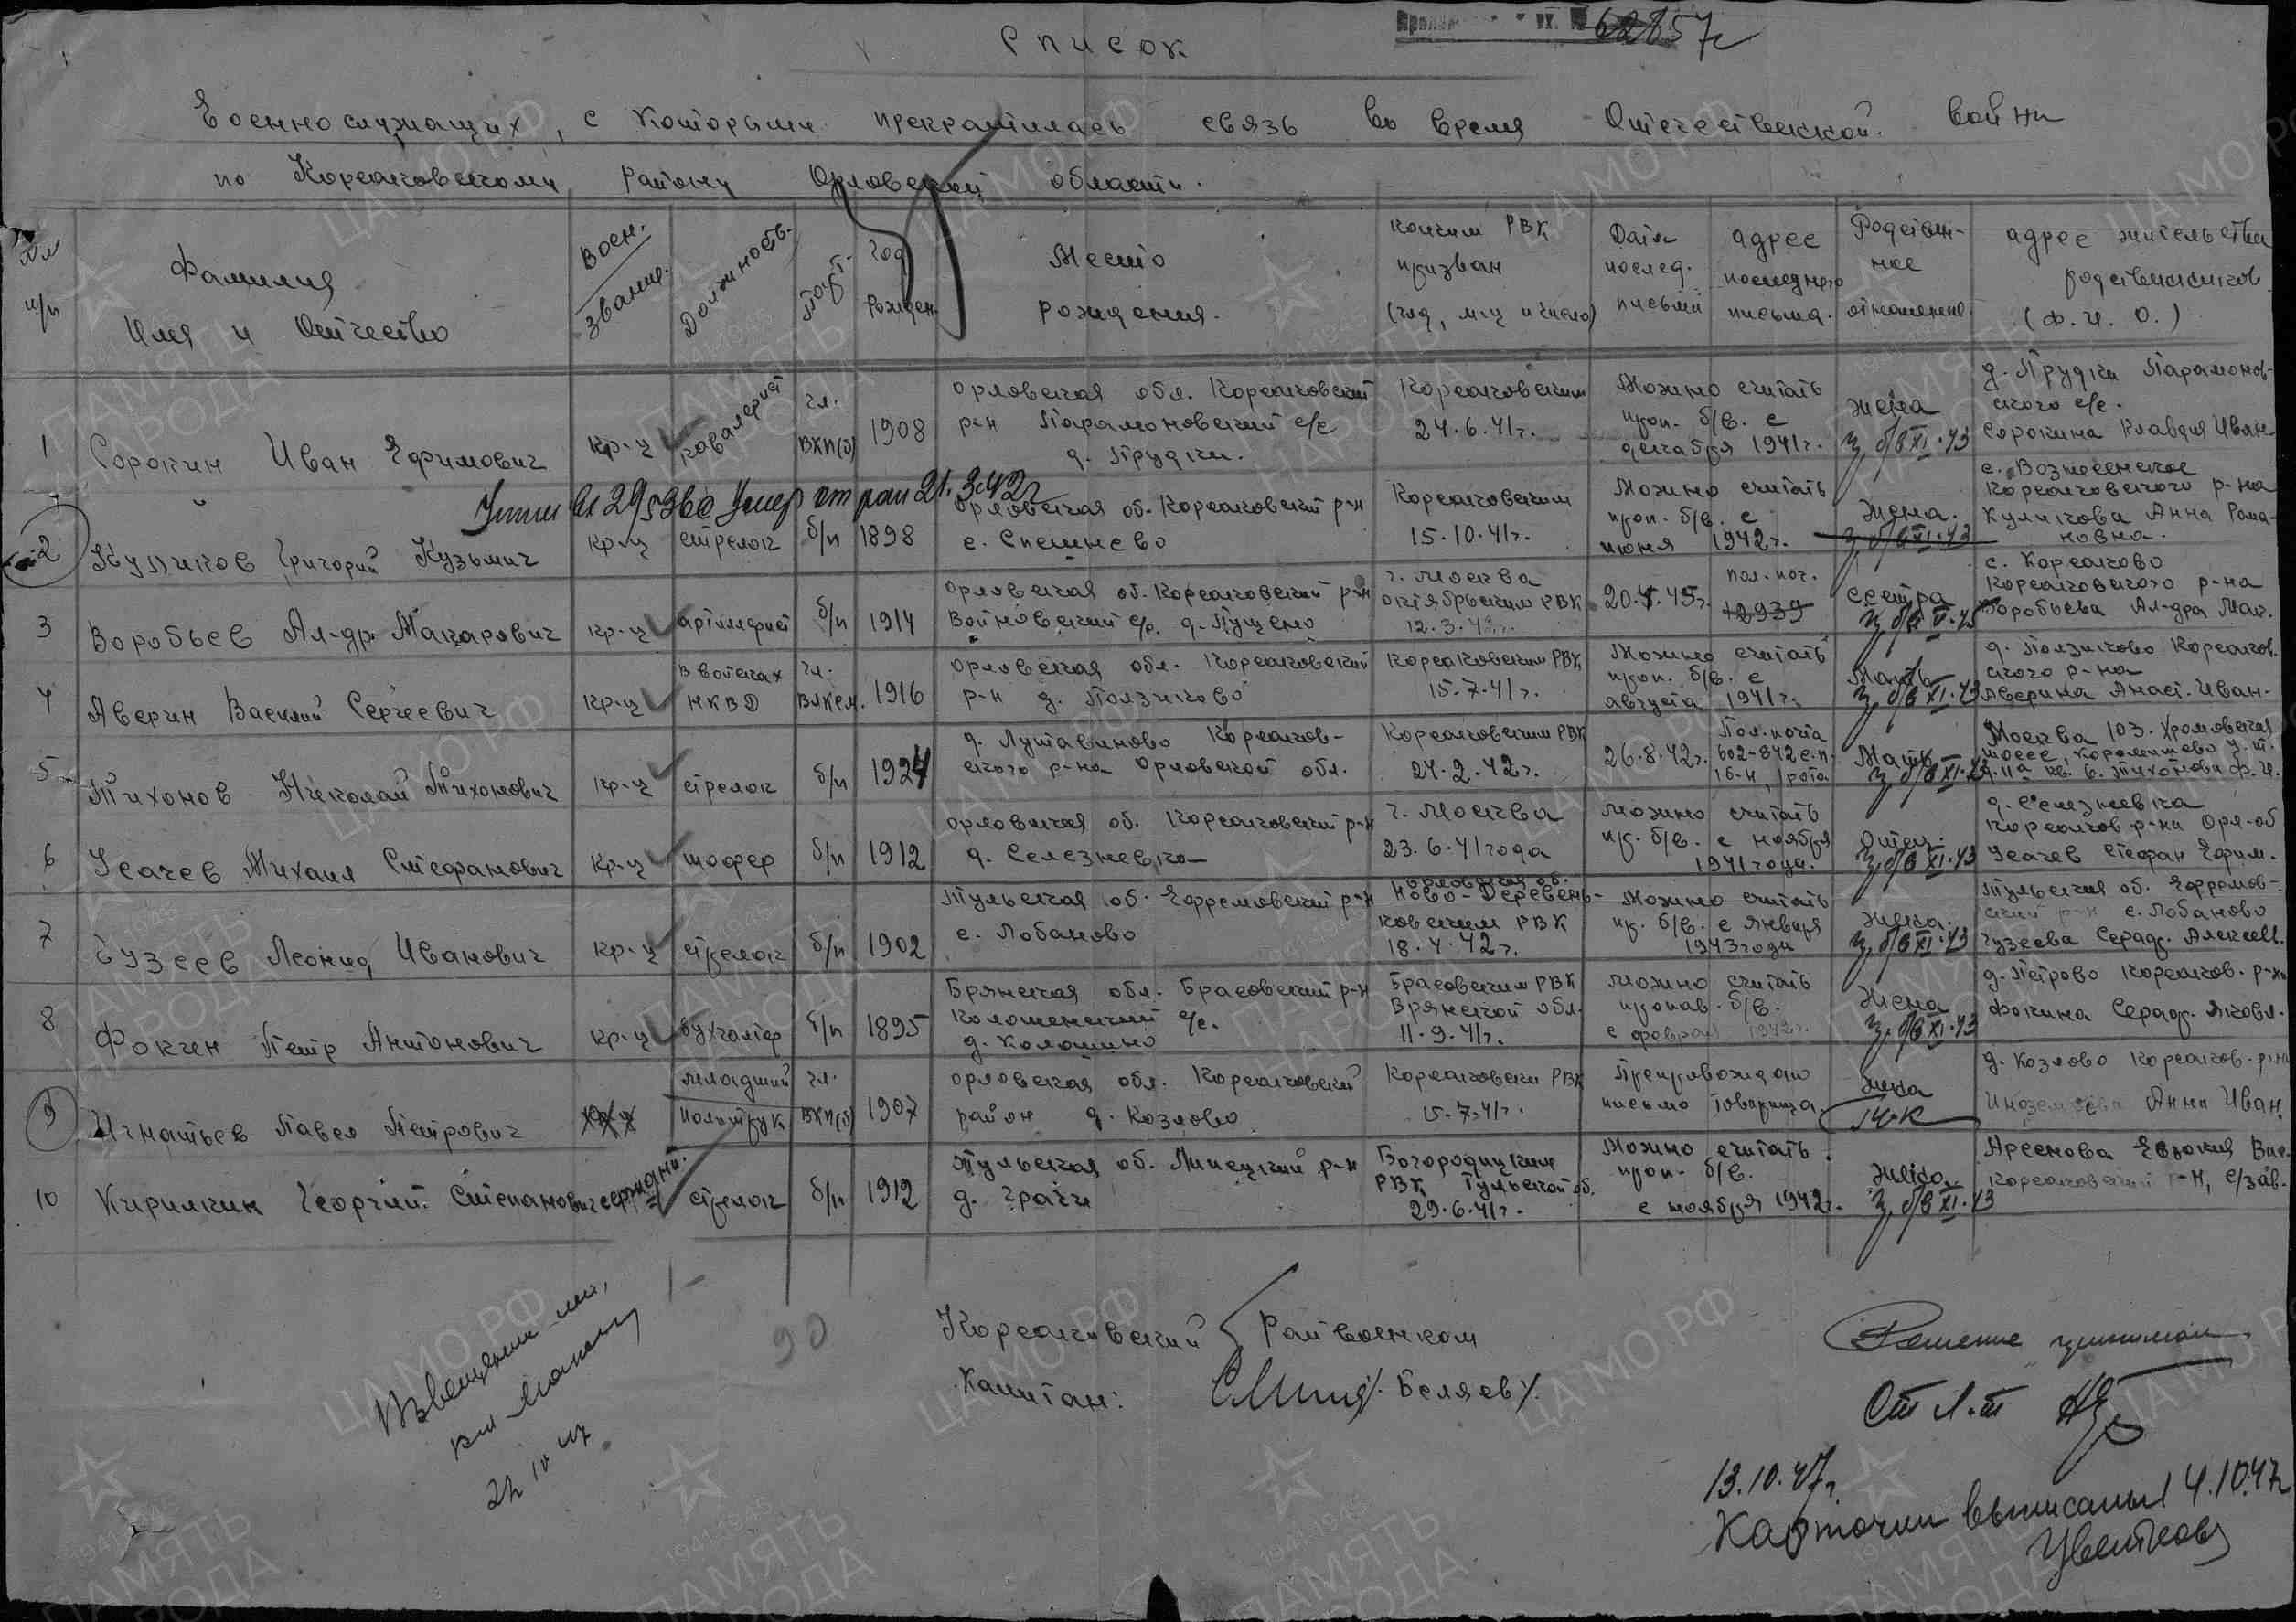 62857с
Список
Военнослужащих, с которыми прекратилась связь во время Отечественной войны
по Корсаковскому району Орловской области.
№№ п/п
Фамилия Имя и Отчество
Воен. звание.
Должность.
Парт.
Год рожден.
Место рождения.
Каким РВК призван (год, м-ц и число)
Дата послед. письма
адрес последнего письма.
Родствен-ное отношение.
адрес жительства родственников (Ф. И. О.)
1
Сорокин Иван Ефимович
кр-ц
кавалерист
чл. ВКП(б)
1908
Орловская обл. Корсаковский
р-н Парамоновский с/с
д. Прудки.
Корсаковским
24.6.41г.
Можно считать
проп. б/в. с
декабря 1941г.
жена
з, б/в XI.43
д. Прудки Парамонов-
ского с/с.
Сорокина Клавдия Иван
Умер от ран 21.3.42г
2
Куликов Григорий Кузьмич
кр-ц
стрелок
б/п
1898
Орловская об. Корсаковский р-н
с. Спешнево
Корсаковским
15.10.41г.
Можно считать
проп. б/в. с
июня 1942г.
жена.
з, б/в XI.43
с. Вознесенское
Корсаковского р-на
Куликова Анна Рома-
новна.
3
Воробьев Ал-др. Макарович
кр-ц
артиллерист
б/п
1914
Орловская об. Корсаковский р-н
Войновский с/с. д. Пущено
г. Москва
октябрьским РВК
12.3.42г.
20.4.45г.
пол. поч.
12939
сестра
с. Корсаково
Корсаковского р-на
Воробьева Ал-дра Мак.
4
Аверин Василий Сергеевич
кр-ц
в войсках
НКВД
чл.
ВЛКСМ.
1916
Орловская обл. Корсаковский
р-н д. Ползиково
Корсаковским РВК
15.7.41г.
Можно считать
проп. б/в. с
августа 1941г.
Мать
з, б/в XI.43
д. Ползиково Корсаков.
ского р-на
Аверина Анаст. Иван.
5
Тихонов Николай Тихонович
кр-ц
стрелок
б/п
1924
д. Лутавиново Корсаков-
ского р-на Орловской обл.
Корсаковским РВК
24.2.42г.
26.8.42г.
Пол. почта
602-842 с.п.
1б-н, 1рота.
Мать
Москва 103.
6
Усачев Михаил Стефанович
кр-ц
шофер
б/п
1912
Орловская об. Корсаковский р-н
д. Селезневка
г. Москва
23.6.41года
Можно считать
пр. б/в. с ноября
1941года.
Отец.
з, б/в XI.43
д. Селезневка
Корсаков р-на Орл-об
Усачев Стефан Ефим.
7
Гузеев Леонид Иванович
кр-ц
стрелок
б/п
1902
Тульская об. Ефремовский р-н
с. Лобаново
Орловская об.
Ново-Деревень-
ковским РВК
18.4.42г.
Можно считать
пр. б/в. с января
1943года
жена.
з, б/в XI.43
Тульская об. Ефремов-
ский р-н с. Лобаново
Гузеева Сераф. Алексеев.
8
Фокин Петр Антонович
кр-ц
бухгалтер
б/п
1895
Брянская обл. Брасовский р-н
Коломенский с/с.
д. Коломино
Брасовским РВК
Брянской обл.
11.9.41г.
Можно считать
пропав. б/в.
с февраля 1942г.
жена
з, б/в XI.43
д. Петрово Корсаков. р-на
Фокина Сераф. Яковл.
9
Игнатьев Павел Петрович
младший
политрук
чл.
ВКП(б)
1907
Орловская обл. Корсаковский
район д. Козлово
Корсаковским РВК
15.7.41г.
Препровождаю
письмо товарища
жена
д. Козлово Корсаков. р-на
Анна Иван.
10
Кирилкин Георгий Степанович
стрелок
б/п
1912
Тульская об. Липецкий р-н
д. Грачи
Богородицким
РВК Тульской об.
29.6.41г.
Можно считать
проп. б/в.
с ноября 1942г.
жена
з, б/в XI.43
Арсенова Евдокия Вас.
Корсаковский р-н, с/зав.
90
Корсаковский Райвоенком
Капитан: /Беляев/.
Извещения
Решение принимал
Ст. л-т
13.10.47г.
Карточки выписаны 14.10.47г
Цветкова
ЦАМО.РФ
ПАМЯТЬ НАРОДА
1941-1945